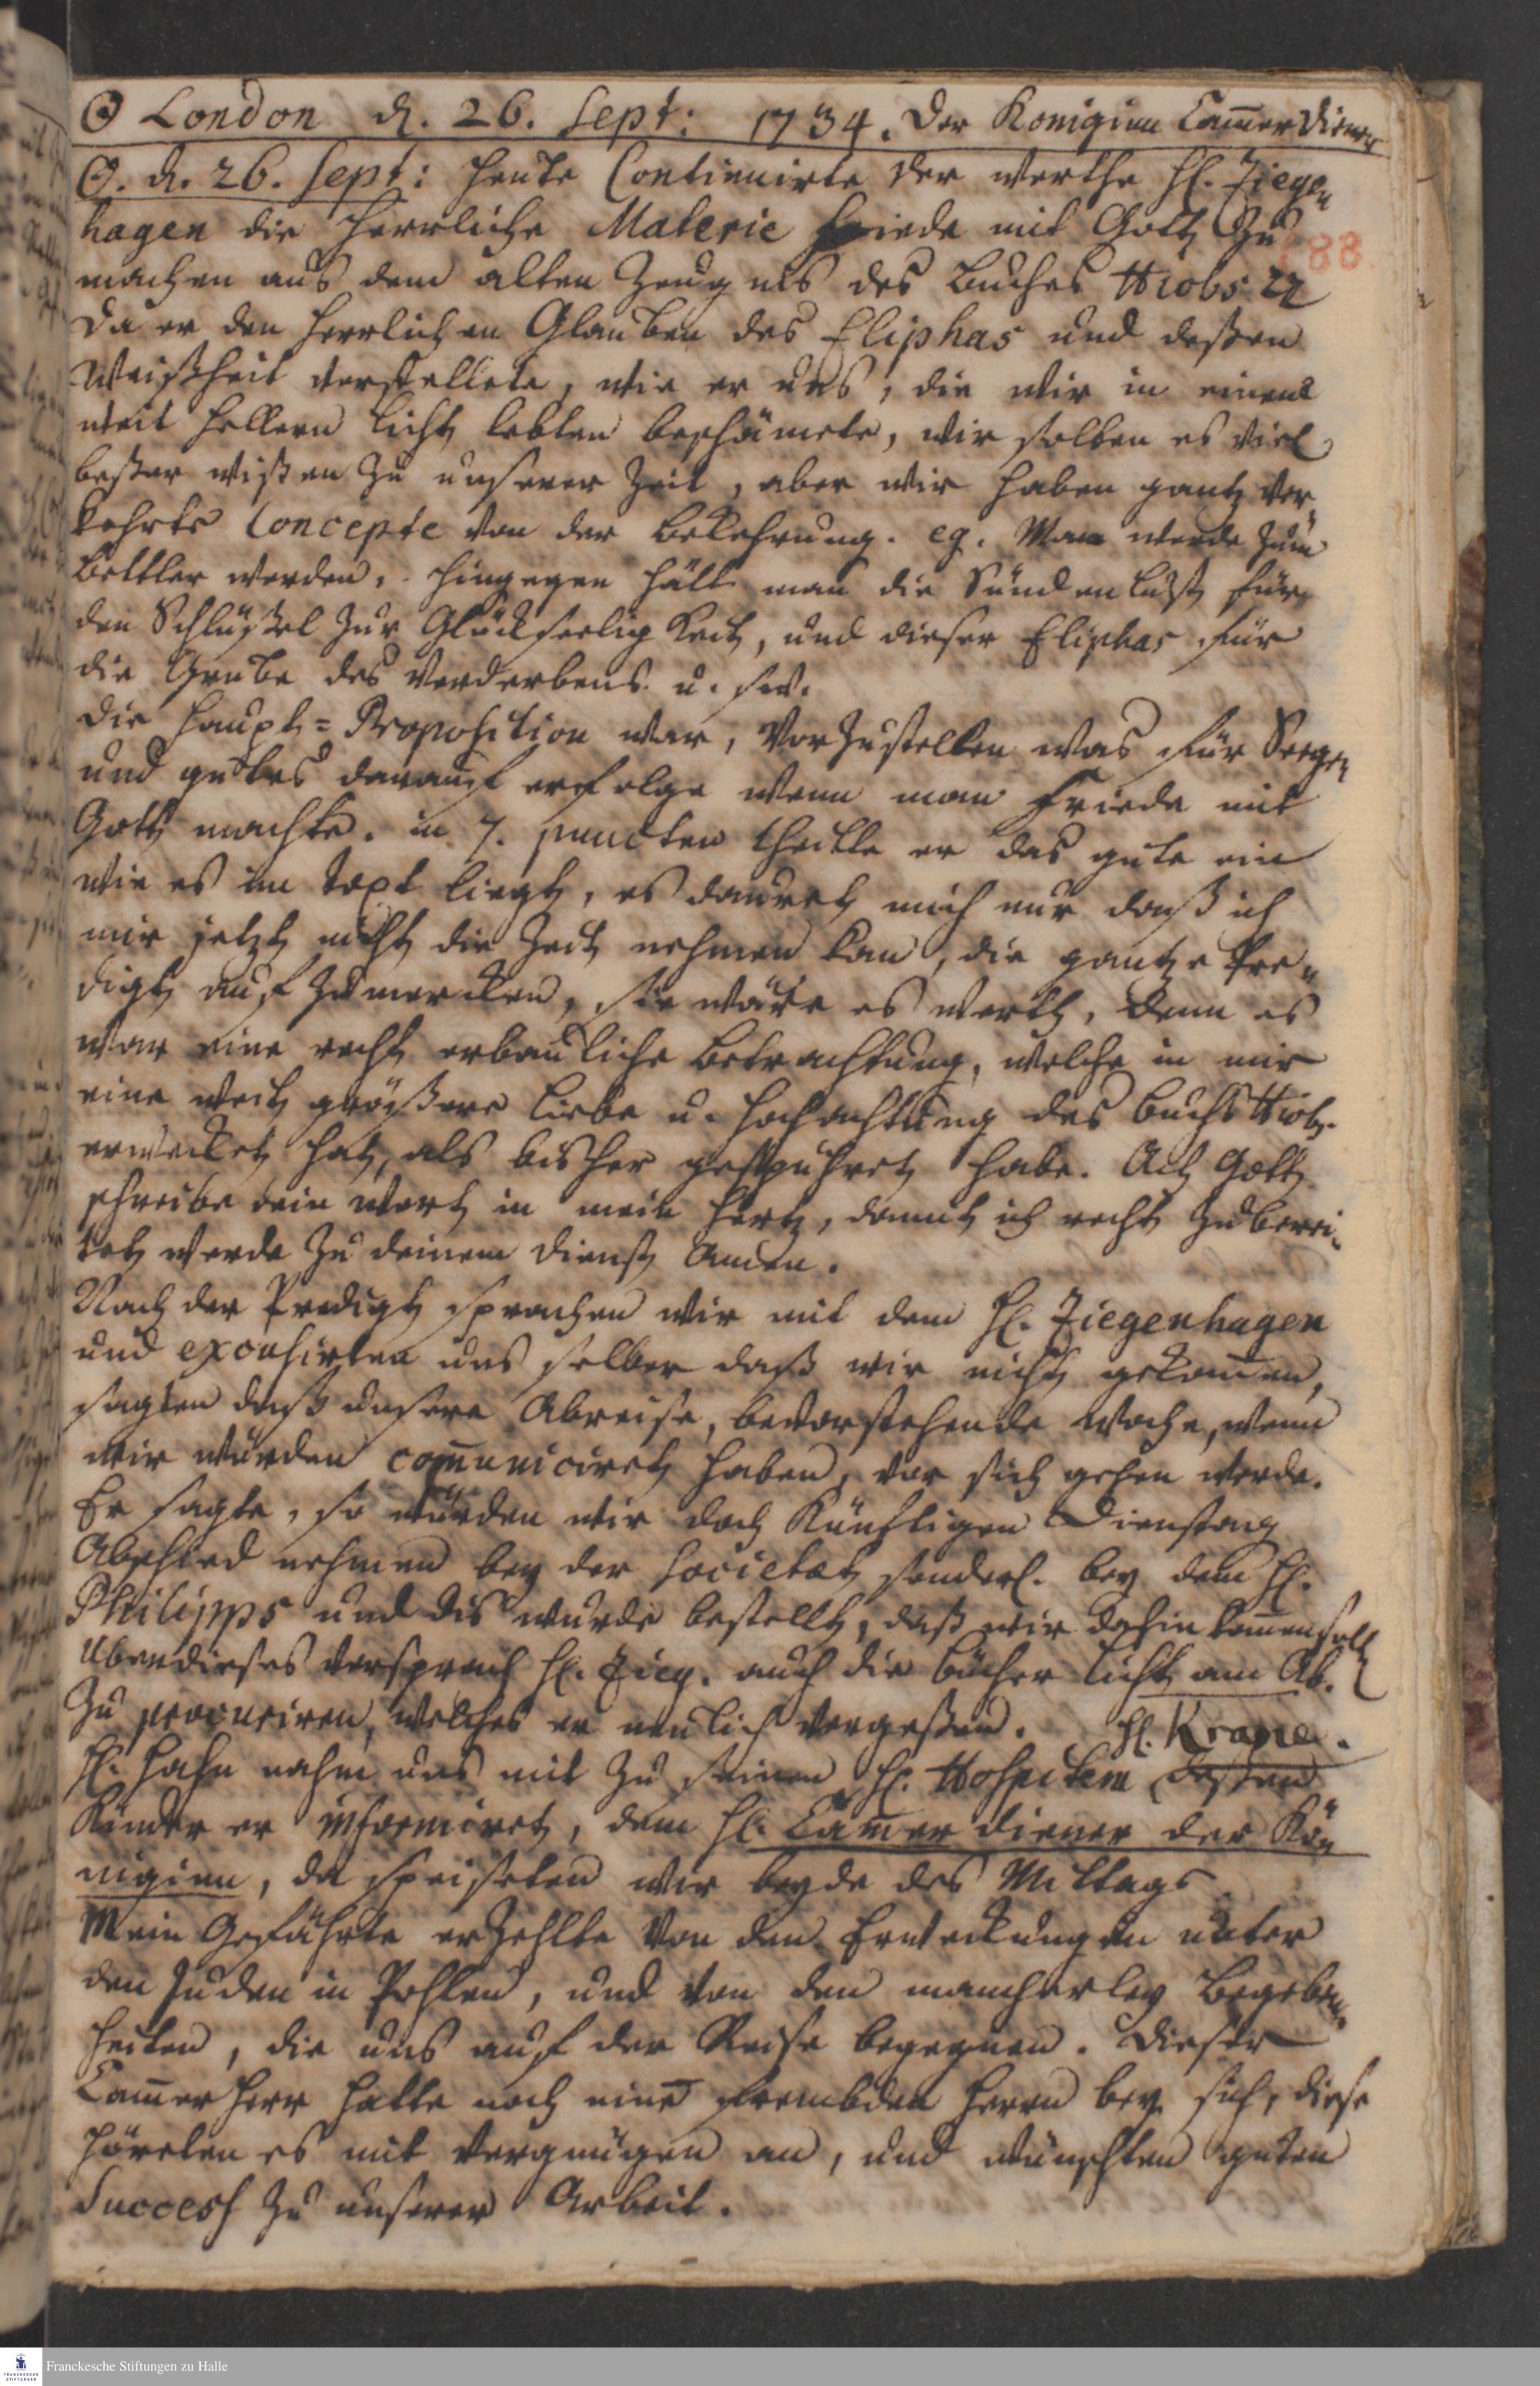 ☉ London d. 26. Sept: 1734. Der Konigien Cam̅erdiener
☉. d. 26. Sept: heute Contienuirte der werthe H. Ziegen
hagen die herrliche Materie Friede mit Gott zu
88.
machen aus dem alten Zeugnis des Buches Hiobs 22
da er den herrlichen Glauben des Eliphas und deßen
Weißheit vorstellete, wie er uns, die wir in einem
weit hellern Licht lebten beschämete, wir solten es viel
beßer wißen zu unserer Zeit, aber wir haben gantz ver
kehrte Concepte von der Bekehrung. eg. Man werde zum
Bettler werden, hingegen hält man die Sünden Lust für
den Schlüßel zur Glückseeligkeit, und dieser Eliphas für
die Grube des Verderbens. u. sw.
Die Haupt=Proposition war, vorzustellen was für Seegen
und gutes darauf erfolge wenn man Friede mit
Gott machte. in 7. puncten theilte er das gute ein
wie es im Text liegt, es dauret mich nur daß ich
mir jetzt nicht die Zeit nehmen kan, die gantze Pre
digt aufzumercken, sie wäre es werth, denn es
war eine recht erbauliche Betrachtung, welche in mir
eine weit größere Liebe u. Hochachtung des Buchs Hiob.
erwecket hat, als bisher gespühret habe. Ach Gott
schreibe dein Wort in mein Hertz, damit ich recht zuberei-
tet werde zu deinem Dienst Amen.
Nach der Predigt sprachen wir mit dem H. Ziegenhagen
und excusirten uns selber daß wir nicht gekom̅en,
sagten daß unsere Abreise, bevorstehende Woche, wenn
wir würden com̅uniciret haben, vor sich gehen werde.
Er sagte, so würden wir doch künftigen Dienstag
Abschied nehmen bey der Societæt sonderl. bey dem H.
Philipps und dis wurde bestellt, daß wir dahin kom̅en solt
Uberdieses versprach H. Zieg. auch die Bücher Licht am Ab.
zu procuriren, welches er neulich vergeßen. H. Krape.
H. Hahn nahm uns mit zu seinen H. Hospitem deßen
Kinder er informiret, dem H. Cam̅er diener der Kö
nigien, da speiseten wir beyde des Mittags
Mein Gefährte erzehlte von den Erweckungen unter
den Juden in Pohlen, und von den mancherley Begeben
heiten, die uns auf der Reise begegnen. Dieser
Cam̅erherr hatte noch eine̅ frembden Herrn bey sich, diese
höreten es mit Vergnügen an, und wünschten guten
Success zu unserer Arbeit.
Franckesche Stiftungen zu Halle